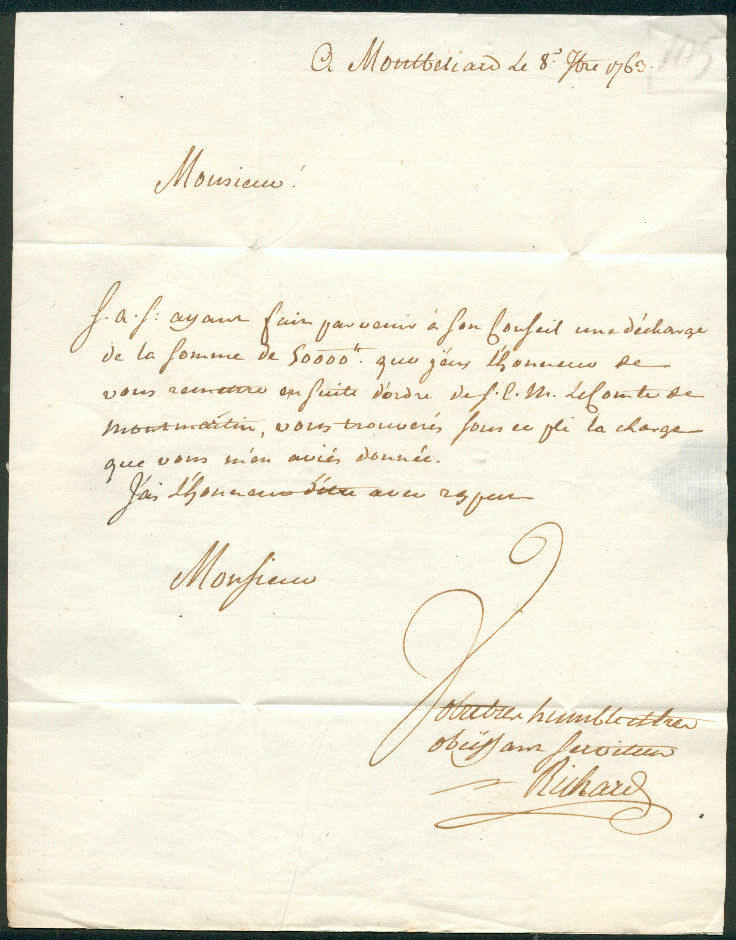 A Montbeliard le 8.e 7bre 1763.
Monsieur!
S. a. S: ayant fait parvenir à Son Conseil une décharge
de la somme de 50000 tt. que j'eus l'honneur de
vous remettre ensuite d'ordre de S. E. M. Le Comte de
Montmartin, vous trouverés sous ce pli la charge
que vous m'en aviés donnée.
J'ai l'honneur d'être avec respect
Monsieur
Votre tres humble et tres
obéissant serviteur
Richard